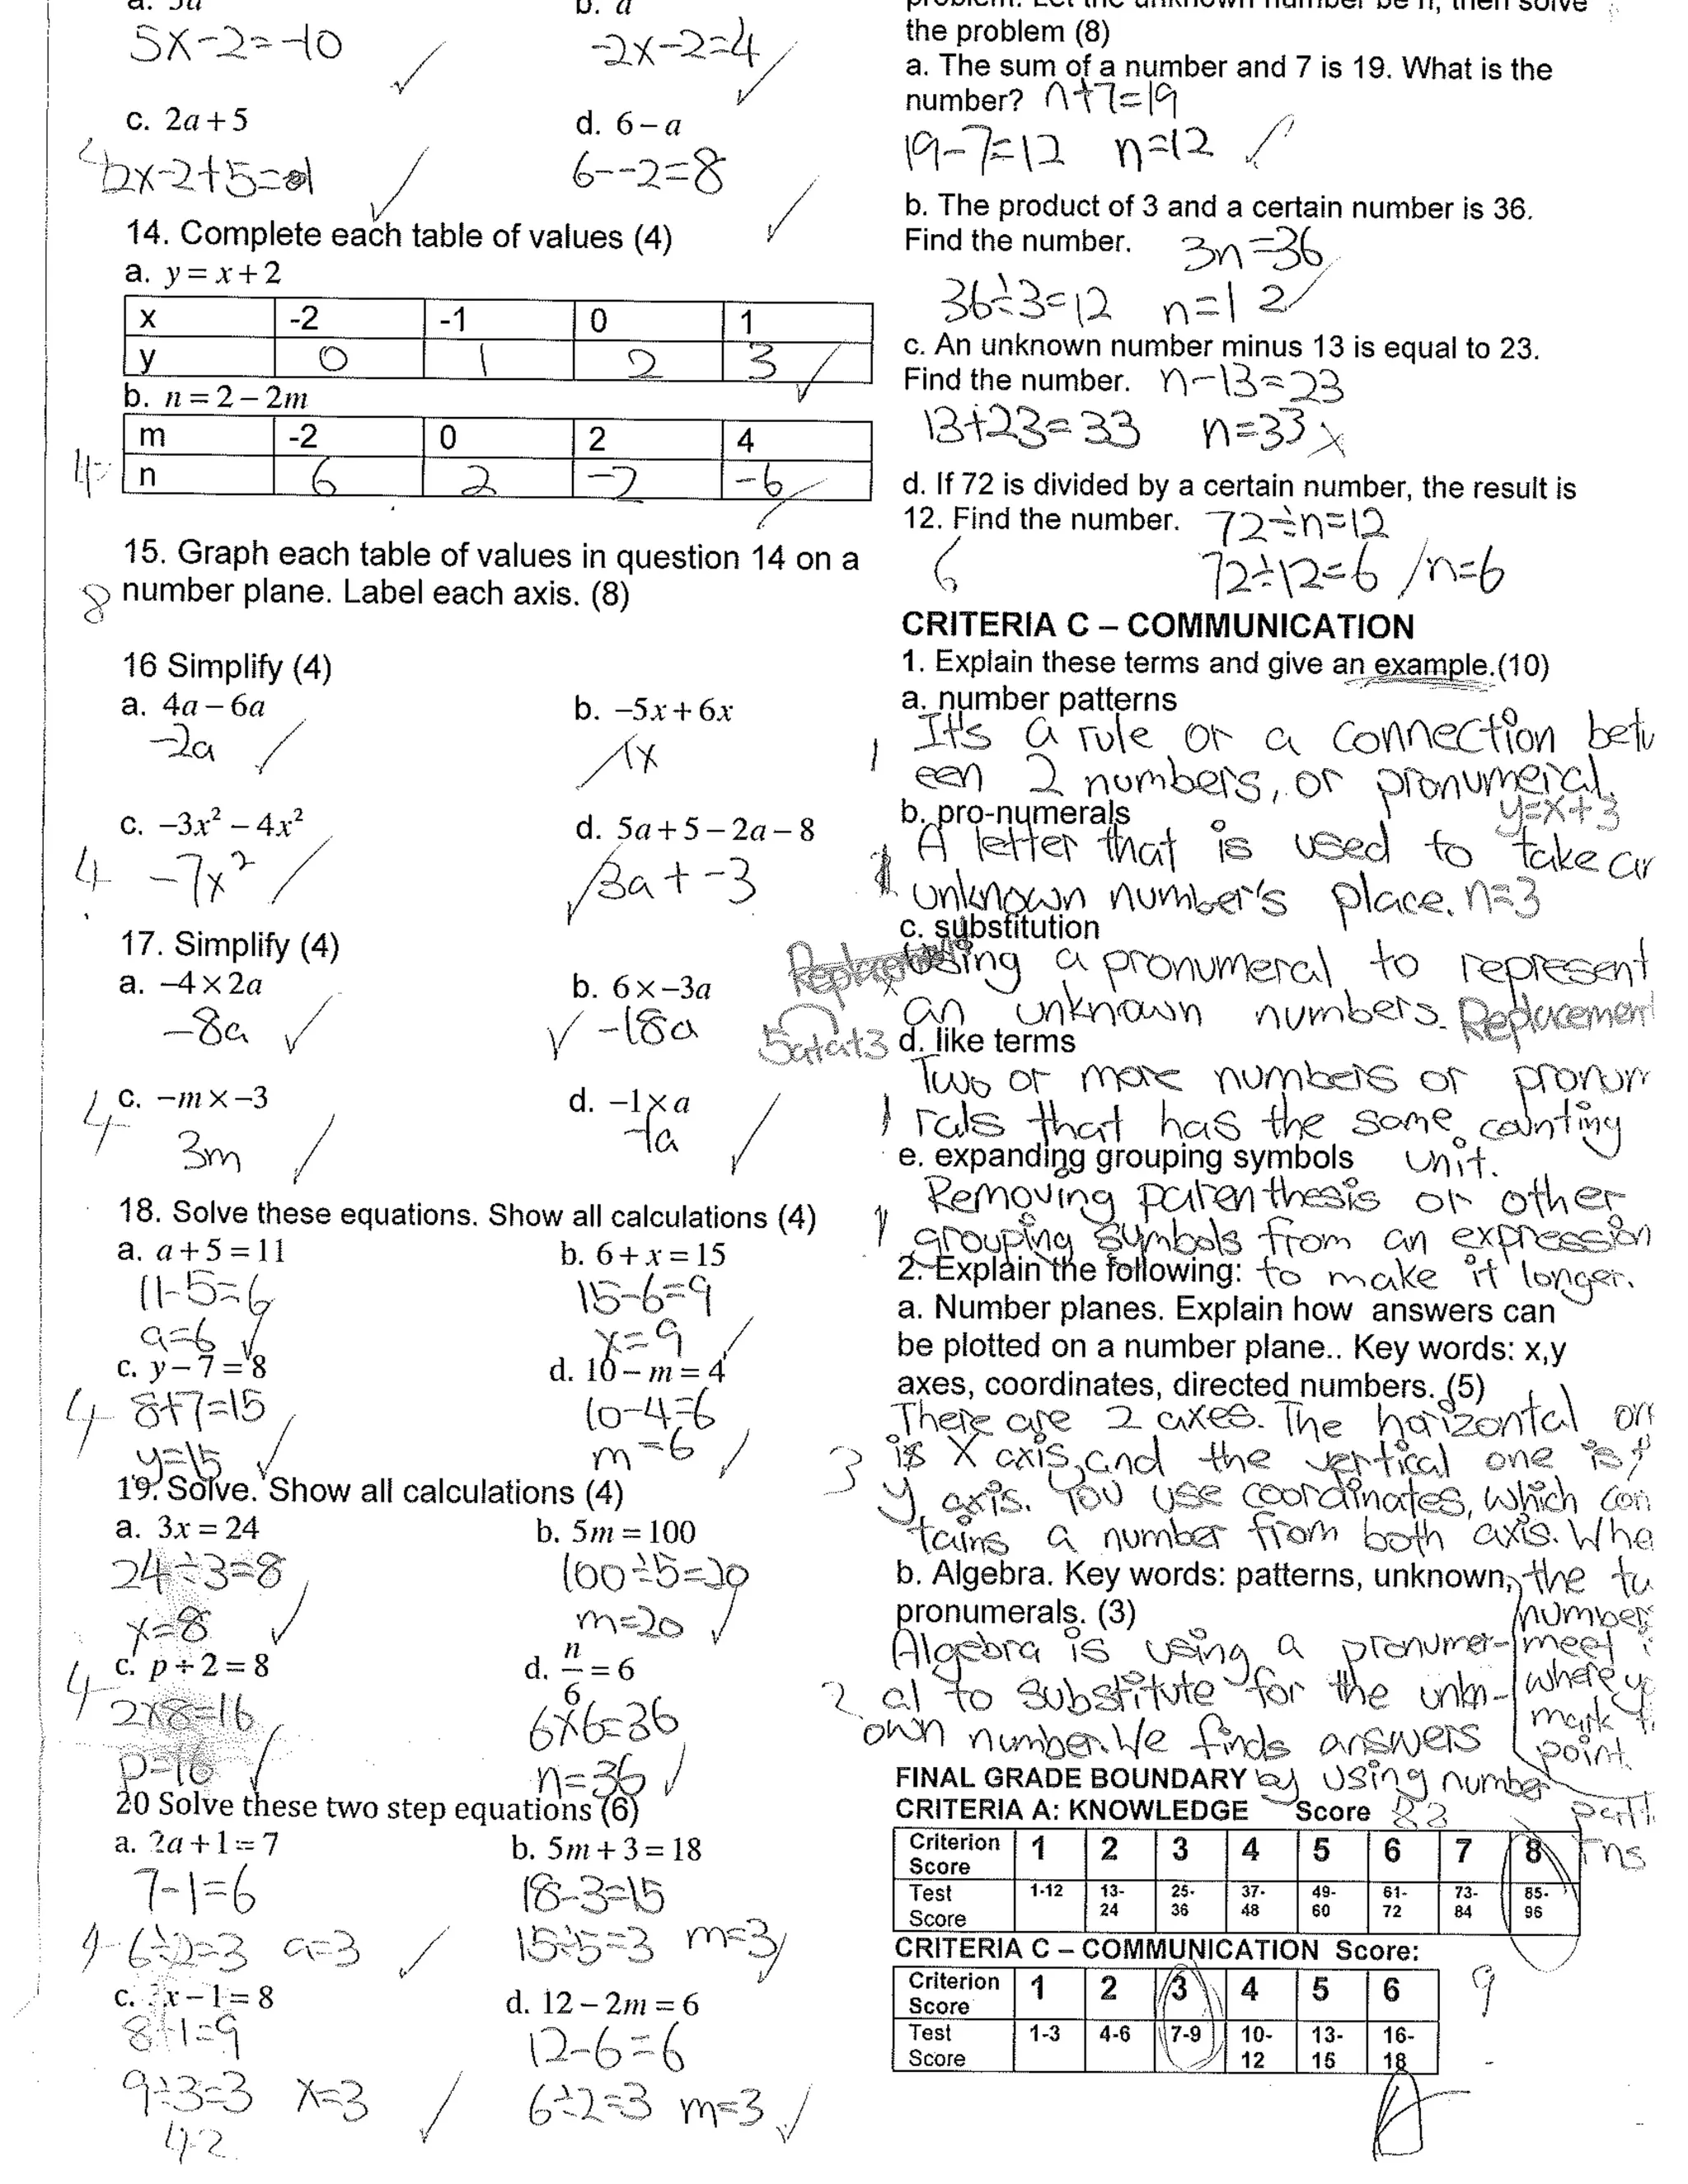 a. 5a
b. a
5x-2=-10
-2x-2=4
c. 2a+5
d. 6-a
4
2x-2+5=1
6--2=8
14. Complete each table of values (4)
a. y = x+2
x -2 -1 0 1
y 0 1 2 3
b. n = 2-2m
m -2 0 2 4
n 6 2 -2 -6
4
15. Graph each table of values in question 14 on a
number plane. Label each axis. (8)
8
16 Simplify (4)
a. 4a-6a
b. -5x+6x
-2a
1x
c. -3x² - 4x²
d. 5a+5-2a-8
4
-7x²
3a+-3
17. Simplify (4)
a. -4×2a
b. 6×-3a
-8a
-18a
c. -m×-3
d. -1×a
4
3m
-1a
18. Solve these equations. Show all calculations (4)
a. a+5=11
b. 6+x=15
11-5=6
15-6=9
a=6
x=9
c. y-7=8
d. 10-m=4
4
8+7=15
10-4=6
y=15
m=6
19. Solve. Show all calculations (4)
a. 3x=24
b. 5m=100
24÷3=8
100÷5=20
x=8
m=20
c. p÷2=8
d. n/6 = 6
4
2x8=16
6x6=36
p=16
n=36
20 Solve these two step equations (6)
a. 2a+1=7
b. 5m+3=18
7-1=6
18-3=15
6÷2=3 a=3
15÷5=3 m=3
c. x-1=8
d. 12-2m=6
8+1=9
12-6=6
9÷3=3 x=3
6÷2=3 m=3
42
problem. Let the unknown number be n, then solve
the problem (8)
a. The sum of a number and 7 is 19. What is the
number? n+7=19
19-7=12 n=12
b. The product of 3 and a certain number is 36.
Find the number. 3n=36
36÷3=12 n=12
c. An unknown number minus 13 is equal to 23.
Find the number. n-13=23
13+23=33 n=33 x
d. If 72 is divided by a certain number, the result is
12. Find the number. 72÷n=12
6
72÷12=6 /n=6
CRITERIA C – COMMUNICATION
1. Explain these terms and give an example.(10)
a. number patterns
1 It's a rule or a connection betw
een 2 numbers, or pronumeral.
b. pro-numerals y=x+3
A letter that is used to take an
unknown number's place. n=3
c. substitution
Using a pronumeral to represent
an unknown numbers. Replacement
5a+a+3 d. like terms
Two or more numbers or pronum
1 rals that has the same counting
e. expanding grouping symbols unit.
Removing parenthesis or other
1 grouping symbols from an expression
2. Explain the following: to make it longer.
a. Number planes. Explain how answers can
be plotted on a number plane.. Key words: x,y
axes, coordinates, directed numbers. (5)
There are 2 axes. The horizontal on
3 is X axis, and the vertical one is
y axis. You use coordinates, which con
tains a number from both axis. Whe
b. Algebra. Key words: patterns, unknown, the
pronumerals. (3) number
Algebra is using a pronumer- meet
2 al to substitute for the unkn- where
own number. We finds answers mark
point.
FINAL GRADE BOUNDARY by using number
CRITERIA A: KNOWLEDGE Score 88 patt
rns
Criterion Score 1 2 3 4 5 6 7 8
Test Score 1-12 13-24 25-36 37-48 49-60 61-72 73-84 85-96
CRITERIA C – COMMUNICATION Score:
9
Criterion Score 1 2 3 4 5 6
Test Score 1-3 4-6 7-9 10-12 13-15 16-18
A